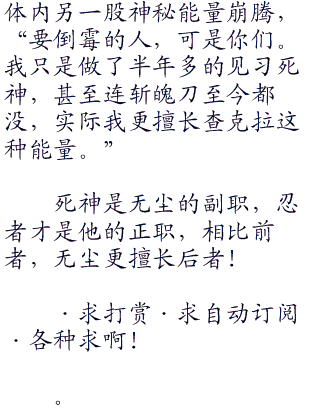 体内另一股神秘能量崩腾，
“要倒霉的人，可是你们。
我只是做了半年多的见习死
神，甚至连斩魄刀至今都
没，实际我更擅长查克拉这
种能量。”
死神是无尘的副职，忍
者才是他的正职，相比前
者，无尘更擅长后者！
·求打赏·求自动订阅
·各种求啊！
。